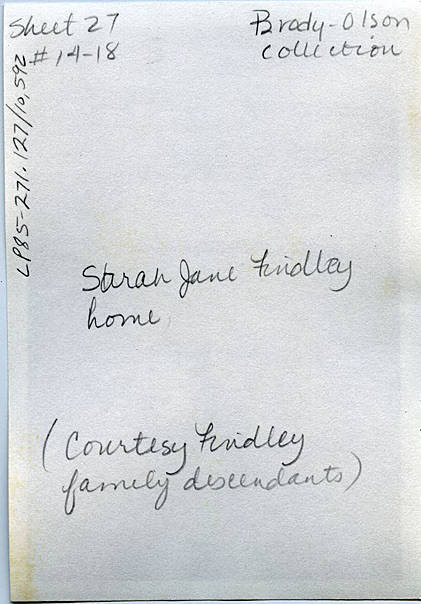 Sheet 27
#14-18
Brody-Olson
Collection
LP85-271.127/10,592
Sarah Jane Findley
home
(Courtesy Findley
family descendants)